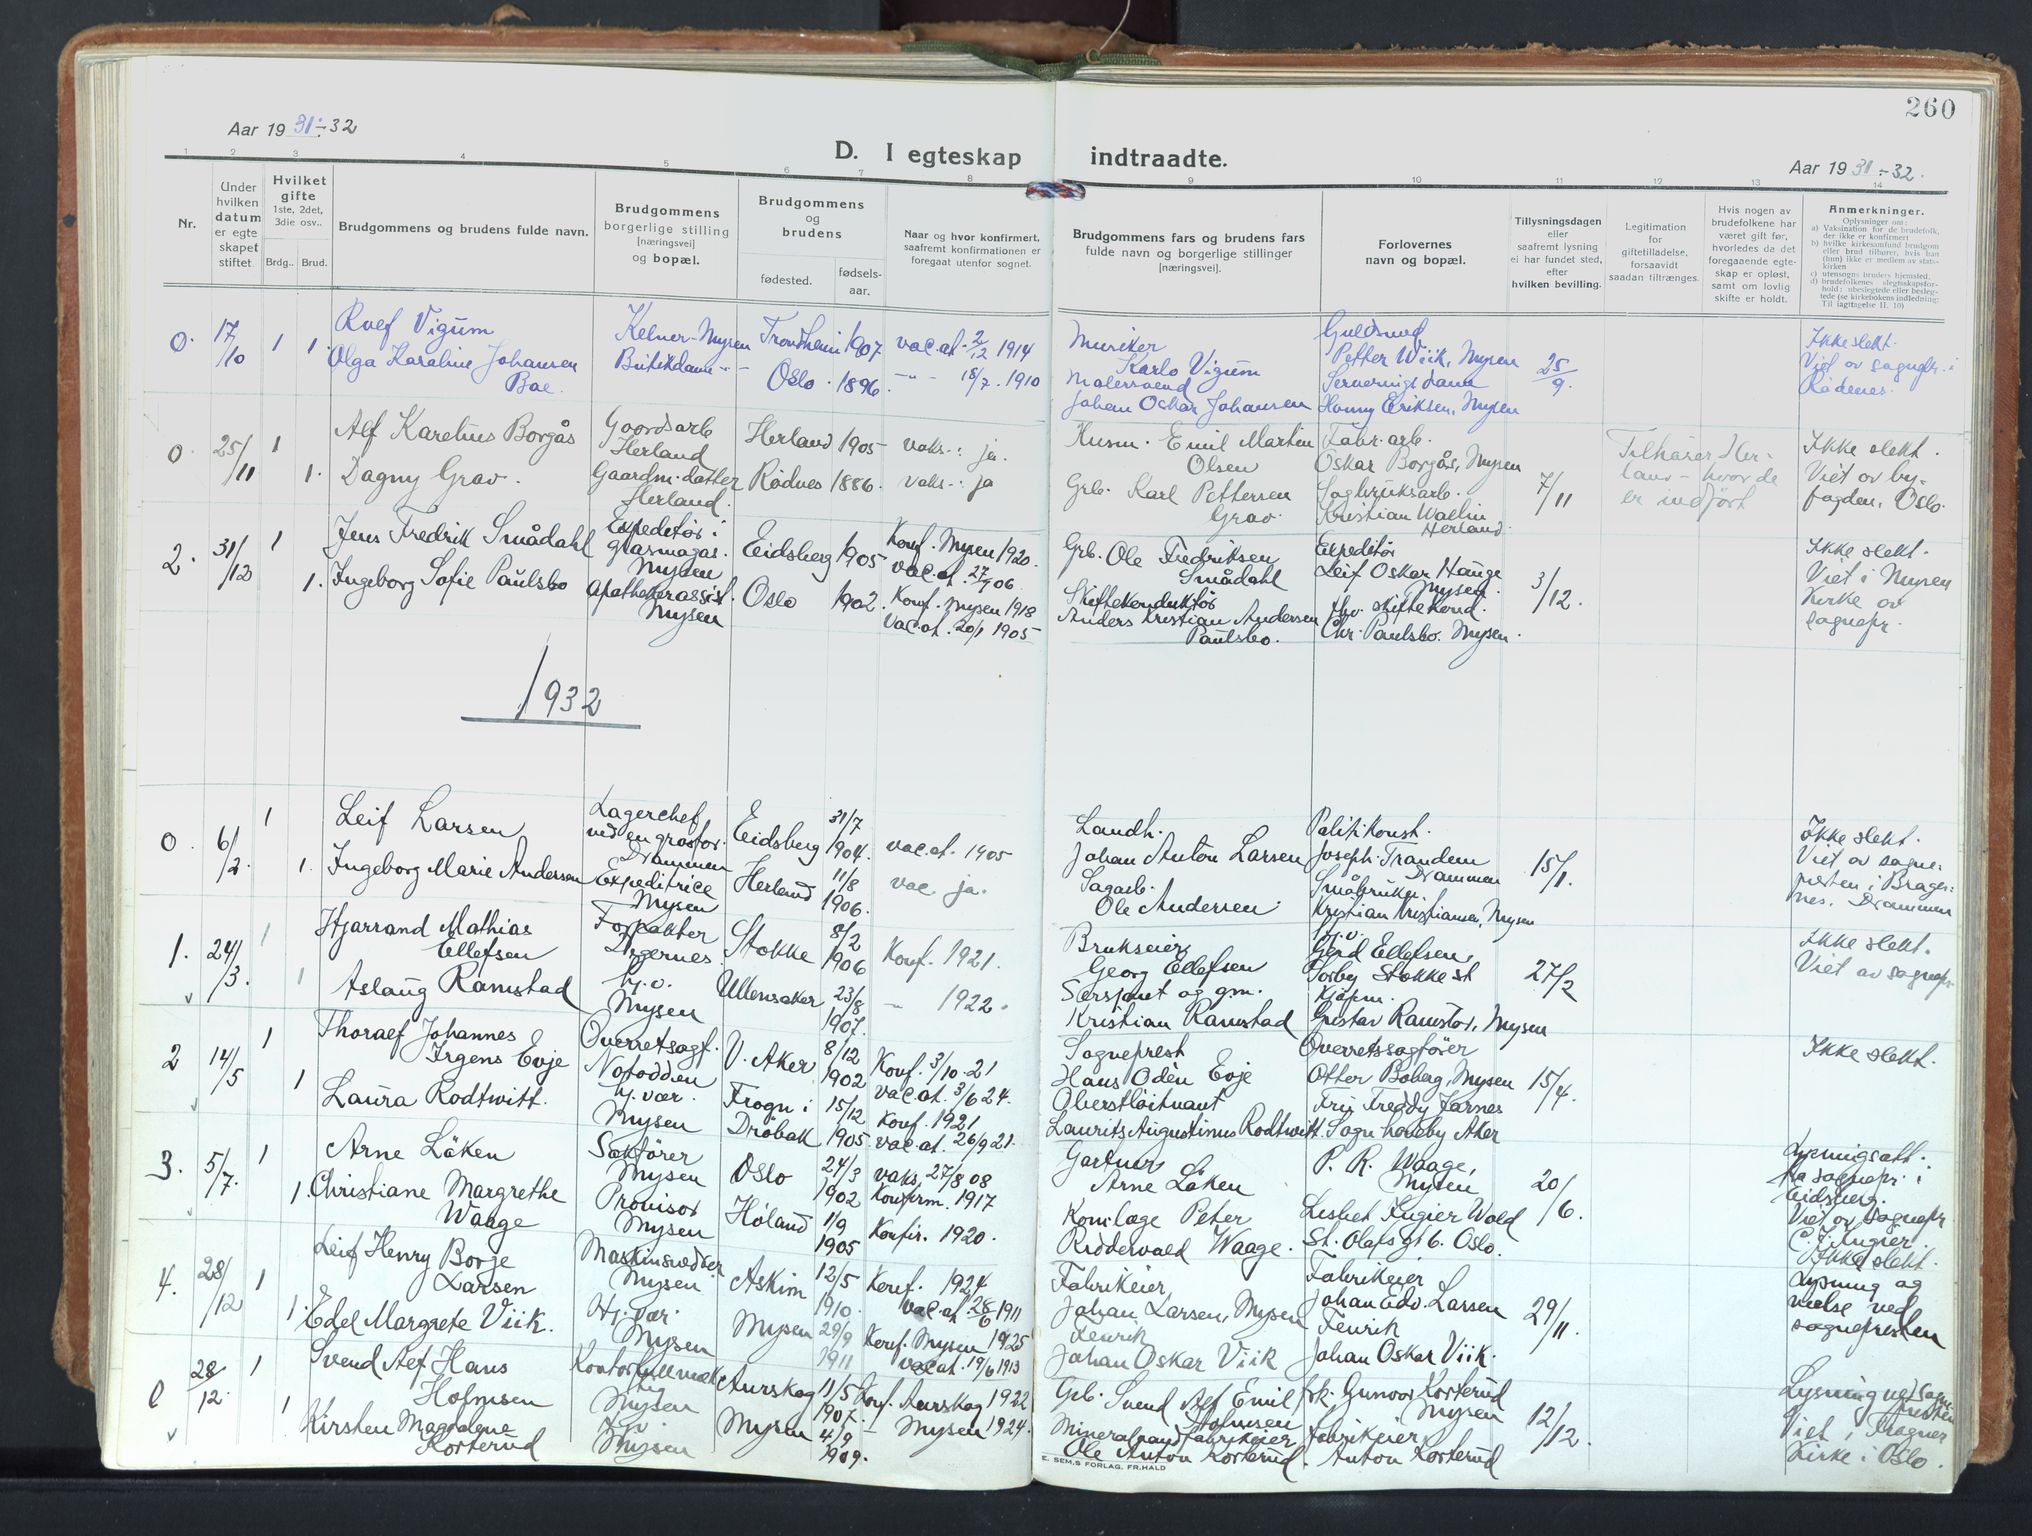 260
Aar 19 31-32
D. I egteskap indtraadte.
Aar 19 31-32.
1 2 3 4 5 6 7 8 9 10 11 12 13 14
Nr.
Under hvilken datum er egteskapet stiftet.
Hvilket gifte
1ste, 2det, 3die osv..
Brdg.. Brud.
Brudgommens og brudens fulde navn.
Brudgommens borgerlige stilling [næringsvei] og bopæl.
Brudgommens og brudens
fødested. fødsels-aar.
Naar og hvor konfirmert, saafremt konfirmationen er foregaat utenfor sognet.
Brudgommens fars og brudens fars fulde navn og borgerlige stillinger [næringsvei].
Forlovernes navn og bopæl.
Tillysningsdagen eller saafremt lysning ei har fundet sted, efter hvilken bevilling.
Legitimation for giftetilladelse, forsaavidt saadan tiltrænges.
Hvis nogen av brudefolkene har været gift før, hvorledes da det foregaaende egteskap er opløst, samt om lovlig skifte er holdt.
Anmerkninger.
Oplysninger om:
a) Vaksination for de brudefolk, der ikke er konfirmert
b) hvilke kirkesamfund brudgom eller brud tilhører, hvis han (hun) ikke er medlem av statskirken
c) utensogns bruders hjemsted.
d) brudefolkenes slegtsskapsforhold; ubeslegtede eller beslegtede (se kirkebokens indledning: Til iagttagelse II. 10)
0. 17/10 1 Rolf Vigum Kelner - Mysen Trondheim 1907 vac.at. 2/12 1914 Musiker Karlo Vigum Guldsmed Petter Wiik, Mysen 25/9. Ikke slekt.
1. Olga Karoline Johansen Boe. Butikdame - " - Oslo. 1896. - " - 18/7. 1910 Malersvend Johan Oskar Johansen Serveringsdame Hanny Eriksen, Mysen Viet av sognepr. i Rødenes.
0 25/11 1 Alf Karelius Borgås Goordsarb Herland Herland 1905 vaks.: ja. Husm. Emil Martin Olsen Fabr. arb. Oskar Borgås, Mysen 7/11 Tilhører Herland - hvor de er indført Ikke slekt.
1. Dagny Grav. Gaardm. datter Herland. Rødnes 1886. vaks.: ja Grb. Karl Pettersen Grav. Sagbruksarb. Kristian Wallin Herland. Viet av byfogden, Oslo.
2. 31/12 1 Jens Fredrik Smådahl Expeditør i glasmagas. Mysen Eidsberg 1905 Konf. Mysen 1920. vac.at. 27/9 06. Grb. Ole Fredriksen Smådahl Expeditør Leif Oskar Hauge Mysen. 3/12. Ikke slekt.
1. Ingeborg Sofie Paulsbo Apothekerassist. Mysen Oslo 1902. Konf. Mysen 1918 vac.at. 20/1 1905 Skiftekonduktør Anders Kristian Andersen Paulsbo. skiftekond. Chr. Paulsbo. Mysen. Viet i Mysen Kirke av sognepr.
1932
0 6/2 1 Leif Larsen Lagerchef ved engrosfor. Drammen Eidsberg 31/7 1904. vac.at. 1905 Landh. Johan Anton Larsen Politikonst. Joseph Trandem Drammen 15/1. Ikke slekt.
1. Ingeborg Marie Andersen Expeditrice Mysen Herland 11/8 1906. vac ja. Sagarb. Ole Andersen. Småbruker Kristian Kristiansen, Mysen Viet av sognepresten i Bragernes. Drammen
1. 24/3 1 Hjarrand Mathias Ellefsen Forpakter Stokke 8/2 1906 Konf. 1921. Brukseier Georg Ellefsen Gerd Ellefsen, Stokke st 27/2 Ikke slekt.
1 Aslaug Ramstad Hj.v. Mysen Ullensaker 23/8 1907. - 1922. Sersjant og gm. Kristian Ramstad Kjøpm. Gustav Ramstad, Mysen Viet av sognepr.
2 14/5 1 Thoralf Johannes Irgens Evje Overretssagf. Notodden V. Aker 8/12 1902 Konf. 3/10 21 vac.at. 3/6 24. Sogneprest Hans Odén Evje Overretssagfører Otter Boberg, Mysen 15/4. Ikke slekt.
1 Laura Rodtwitt. hj. vær. Mysen Frogn i Drøbak 15/12 1905 Konf. 1921 vac.at. 26/9 21. Oberstløitnant Laurits Augustinus Rodtwitt Freddy Jarnes Aker
3. 5/7. 1 Arne Låken Sakfører Mysen Oslo 24/3 1902 vaks. 27/8 08 Konfirm. 1917 Gartner Arne Låken P. R. Waage, Mysen 20/6. Lysningsatt. fra sognepr. i Eidsberg.
1. Christiane Margrethe Waage Provisor Mysen Høland 1/9 1905 Konfir. 1920. Peter Riddervold Waage. Lisbet Kugier Wold St. Olafs gt 6. Oslo. Viet av sognepr. C. F. Kugier.
4. 28/12 1 Leif Henry Borge Larsen Maskinsnedker Mysen Askim 12/5 1910. Konf. 1924 vac.at. 28/6 1911 Fabrikeier, Johan Larsen, Mysen Fabrikeier Johan Edv. Larsen 29/11. Ikke slekt.
1. Edel Margrete Viik. Hj. vær. Mysen Mysen 29/9 1911 Konf. Mysen 1925 vac.at. 19/6 1913 Fenrik Johan Oskar Viik Fenrik Johan Oskar Viik. Lysning og vielse ved sognepresten
0 28/12. 1 Svend Alf Hans Holmsen Kontorfullmektig Mysen Aurskog 11/5 1907. Konf. Aurskog 1922 Grb. Svend Alf Emil Holmsen frk. Gunvor Korterud Mysen 12/12. Lysning ved sognepresten
1 Kirsten Magdalene Korterud Hj.v. Mysen Mysen 4/9 1909. - Mysen 1924. Mineralvandfabrikeier Ole Anton Korterud. Fabrikeier, Anton Korterud Viet i Frogner Kirke i Oslo.
E. SEM,S FORLAG, FR.HALD